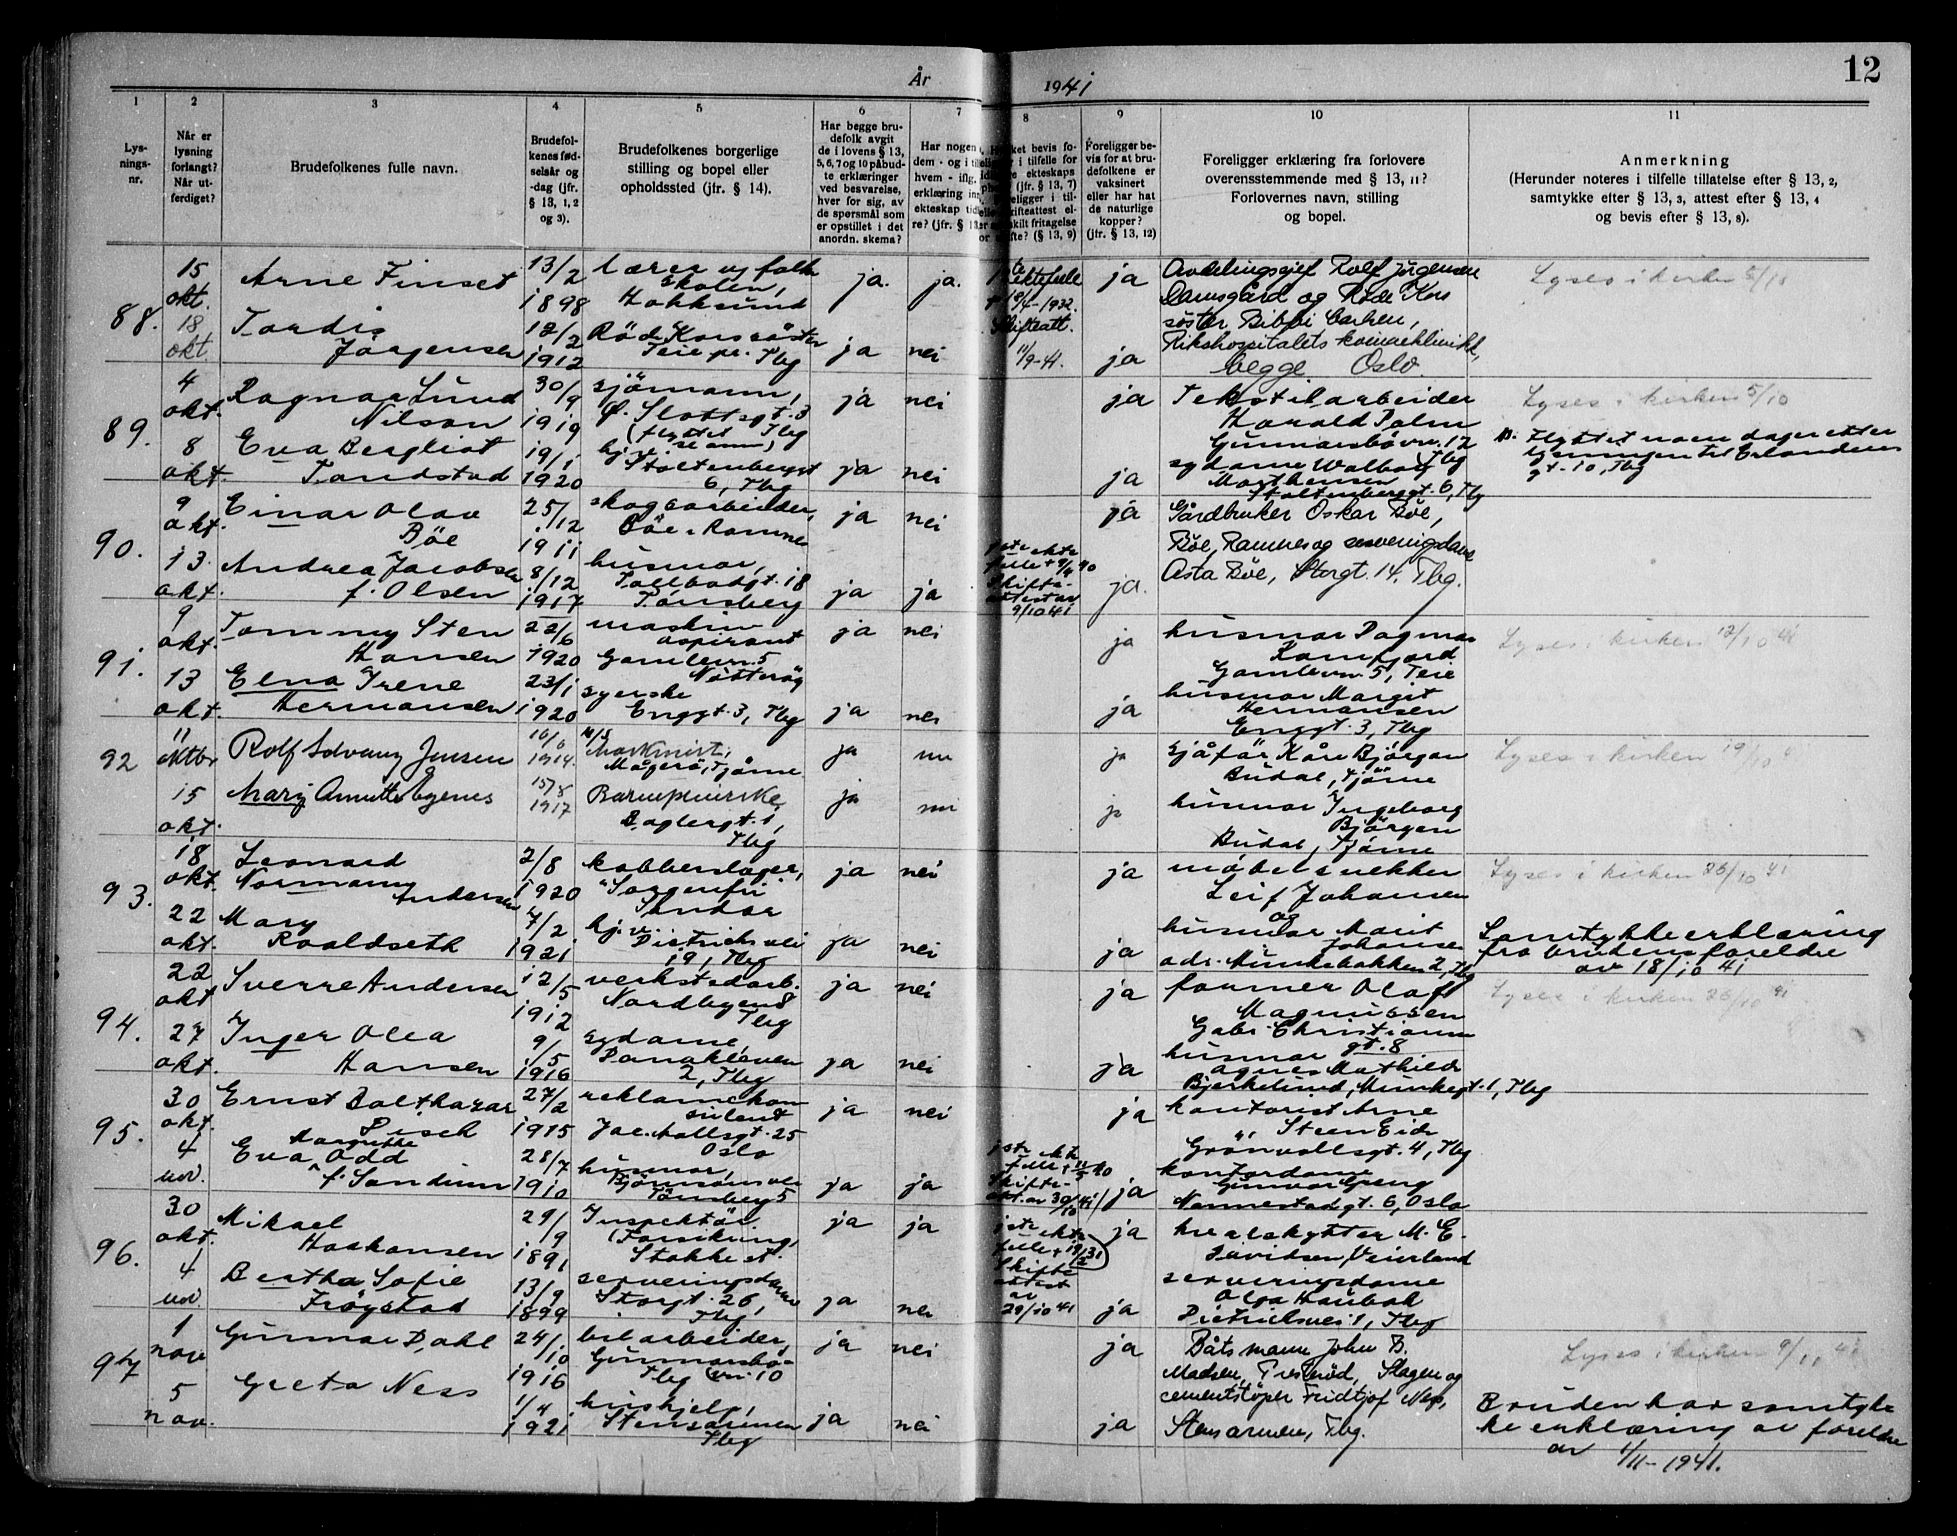 12
År 1941
1 2 3 4 5 6 7 8 9 10 11
Lys-
nings-
nr.
Når er
lysning
forlangt?
Når ut-
ferdiget?
Brudefolkenes fulle navn.
Brudefol-
kenes fød-
selsår og
-dag (jfr.
§ 13, 1, 2
og 3).
Brudefolkenes borgerlige
stilling og bopel eller
opholdssted (jfr. § 14).
Har begge bru-
defolk avgit
de i lovens § 13,
5, 6, 7 og 10 påbud-
te erklæringer
ved besvarelse,
hver for sig, av
de spørsmål som
er opstillet i det
anordn. skema?
Har nogen
dem - og i
hvem - iflg.
erklæring in
ekteskap tid
re? (jfr. § 13
ket bevis fo-
i tilfelle for
ekteskaps
(jfr. § 13, 7)
eligger i til-
skifteattest el-
skilt fritagelse
(§ 13, 9)
Foreligger be-
vis for at bru-
defolkene er
vaksinert
eller har hat
de naturlige
kopper?
(jfr. § 13, 12)
Foreligger erklæring fra forlovere
overensstemmende med § 13, 11?
Forlovernes navn, stilling
og bopel.
Anmerkning
(Herunder noteres i tilfelle tillatelse efter § 13, 2,
samtykke efter § 13, 3, attest efter § 13, 4
og bevis efter § 13, 8).
88.
15
okt.
18
okt.
Arne Finset
13/2
1898
lærer v/ folke
skolen,
Hokksund
ja. ja.
ektefelle
1932.
Skifteatt.
11/9-41.
ja
Avdelingssjef Rolf Jørgensen
Damsgård og Røde Kors
søster Bibbi Carlsen,
Rikshospitalets
begge Oslo.
Lyses i kirken 5/10
Tordis
Jørgensen
12/2
1912
Røde Korssøster
Teie pr. Tbg
ja nei
ja
89.
4
okt.
8
okt.
Ragnar Lund
Nilson
30/9
1919
sjömann,
Slottsgt. 3
(flyttet Tbg
se anm)
ja nei
ja
Tekstilarbeider
Harald Palm
Gunnarsbövn. 12
Tbg
Lyses i kirken 5/10
Flyttet noen dager etter
lysningen til Erlandsens
gt. 10, Tbg
Eva Bergliot
Tandstad
19/1
1920
hj.v.
Stoltenbergsgt
6, Tbg
ja nei
ja
sydame Walborg
Marthensen
Stoltenbergsgt. 6, Tbg
90.
9
okt.
13
okt.
Einar Olav
Böe
25/12
1911
skogsarbeider,
Böe i Ramnes
ja nei
ja
Gårdbruker Oskar Böe,
Böe, Ramnes og serveringsdame
Asta Böe, Storgt. 14, Tbg.
Andrea Jacobsen
f. Olsen
8/12
1917
husmor,
Tollbodgt. 18
Tönsberg
ja ja
Skifte-
attest av
9/10 41
ja.
91.
9
okt.
13
okt.
Tommy Sten
Hansen
22/6
1920
maskin
aspirant
Gamlevn. 5
Nötteröy
ja nei
ja
husmor Dagmar
Ramfjord
Gamlevn 5, Teie
Lyses i kirken 12/10 41
Elna Irene
Hermansen
23/1
1920
syerske
Enggt. 3, Tbg
ja nei
ja
husmor Margit
Hermansen
Enggt. 3, Tbg
92
11
oktbr
15
okt.
Rolf Jensen
1914.
Maskinist,
Mågerö, Tjøme
ja nei
ja
sjåför Kåre Björgan
Budal, Tjöme
Lyses i kirken 19/10
Mary Annette Egenes
15/8
1917
Barnepleierske,
Baglergt. 1,
Tbg
ja nei
ja
husmor Ingeborg
Björgen
Budal, Tjöme
93.
18
okt.
22
okt.
Leonard
Normann
Andersen
2/8
1920
kobberslager,
"Sorgenfri"
Sandar
ja nei
ja
møbelsnekker
Leif Johansen
og
Lyses i kirken 26/10 41
Mary
Roaldseth
7/2
1921
hj.v.
Dietrichs vei
19, Tbg
ja nei
ja
husmor Marit
Johansen
adr. Munkebakken 2, Tbg
Samtykkeerklæring
fra brudens foreldre
av 18/10 41
94.
22
okt
27
okt.
Sverre Andersen
12/5
1912
verkstedarb.
Nordbyen 8
Tbg
ja nei
ja
former Olaf
Magnussen
Gabr. Christiansens
gt. 8
Lyses i kirken 26/10 41
Inger Olea
Hansen
9/5
1916
sydame,
Danakleven
2, Tbg
ja nei
ja
husmor
Agnes Mathilde
Bjerkelund, Munkegt. 1, Tbg
95.
30
okt.
4
nov.
Ernst Balthazar
27/2
1915
reklamekon
sulent
Jac. Aallsgt. 25
Oslo
ja nei
ja
kontorist Arne
Steen Eide
Grönvollsgt. 4, Tbg
Margrethe
Eva Odd
f. Sandum
28/7
1910
husmor,
Tönsberg
ja ja
Skifte-
att. av 30/10 41
ja
kontordame
Gunvor Greng
Nannestadgt. 6, Oslo
96.
30
okt.
4
nov.
Mikael
Haakonsen
29/9
1891
Inspektör
(Forsikring)
Stokke st.
ja ja
Skifte
attest
av
29/10 41
ja
hvalskytter M. E.
Davidsen, Veierland
Bertha Sofie
Fröystad
13/9
1899
serveringsdame
Storgt. 26,
Tbg
ja nei
ja
serveringsdame
Olga Haubak
Dietrichsvei 1, Tbg
97
1
nov
5
nov.
Gunnar Dahl
24/10
1916
bilarbeider,
Gunnarsbö-
Tbg vn. 10
ja nei
ja
Båtsmann John B.
Madsen, Presterød, Slagen og
cementstøper Fridtjof Ness,
Stensarmen, Tbg.
Lyses i kirken 9/11 41
Greta Ness
1/4
1921
hushjelp,
Stensarmen
Tbg
ja nei
ja
Bruden har samtyk-
ke erklæring av foreldre
av 1/11-1941.